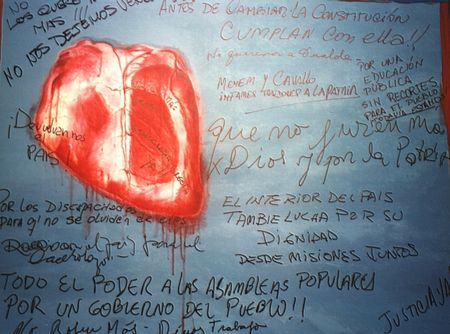 NO
LOS QUERE
MAS!!!
NO NOS DEJEMOS VENCER
ANTES DE CAMBIAR LA CONSTITUCIÓN
CUMPLAN CON ella!!
No queremos a
MENEM Y CAVALLO
INFAMES TRAIDORES A LA PATRIA
POR UNA
EDUCACIÓN
PÚBLICA
SIN RECORTES
PARA EL PUEBLO
¡Devuelvannos
el
PAIS!
Que no juren más
x Dios y por la Patria
POR LOS DESEMPLEADOS
PARA q' no se olviden de ellos
EL INTERIOR DEL PAIS
TAMBIE LUCHA POR SU
DIGNIDAD
DESDE MISIONES JUNTOS
TODO EL PODER A LAS ASAMBLEAS POPULARES
POR UN GOBIERNO DEL PUEBLO!!
No Roben Mas - Trabajo
JUSTICIA YA